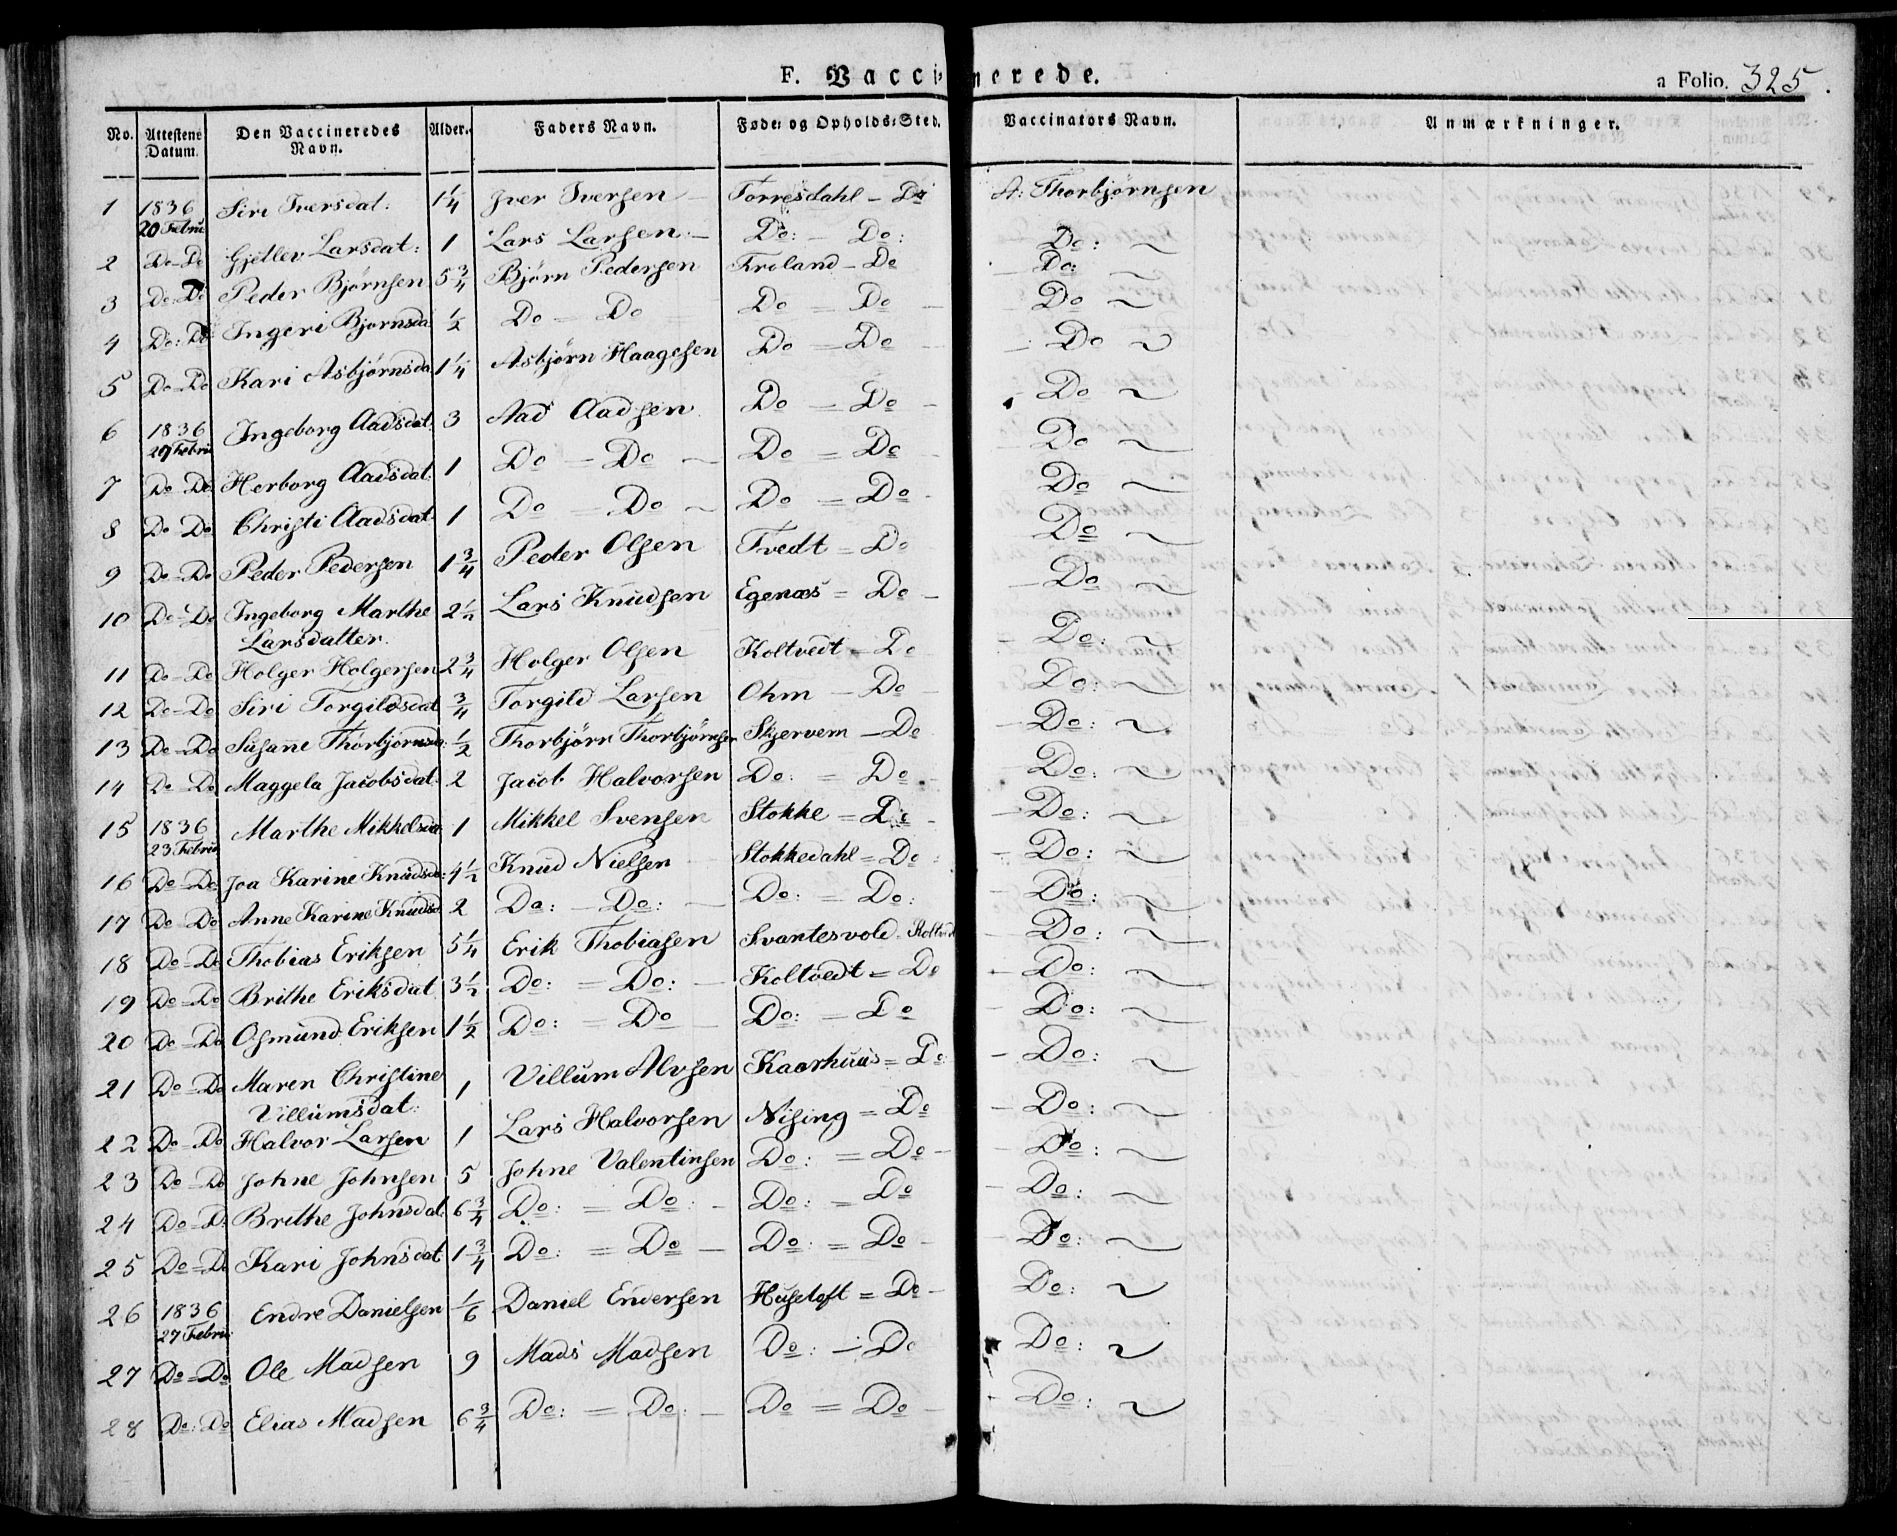 F. Vaccinerede. a Folio. 325.
No. Attestens Datum. Den Vaccineredes Navn. Alder. Faders Navn. Føde- og Opholds-Sted. Vaccinators Navn. Anmærkninger.
1 1836 20 Febru Siri Iversdat: 1 1/4 Iver Iversen – Torresdahl – Do A: Thorbjørnsen
2 Do–Do Gjetlev Larsdat: 1 Lars Larsen – Do: – Do: Do: ~
3 Do–Do Peder Bjørnsen 5 3/4 Bjørn Pedersen Froland – Do – Do: ~
4 Do:Do Ingeri Bjørnsda 1/2 Do – Do Do = Do – Do ~
5 Do–Do Kari Asbjørnsda 1 1/4 Asbjørn Haagesen Do = Do – Do ~
6 1836 20 Febru Ingeborg Aadsdat. 3 Aad Aadsen Do = Do – Do ~
7 Do–Do Herborg Aadsdat. 1 Do = Do ~ Do = Do – Do ~
8 Do–Do. Christi Aadsdat 1 Do = Do ~ Do = Do – Do ~
9 Do–Do Peder Pedersen 1 3/4 Peder Olsen Tvedt = Do Do ~
10 Do–Do Ingeborg Marthe 2 1/2 Lars Knudsen Egenæs = Do – – Do ~
Larsdatter.
11 Do–Do Holger Holgersen 2 3/4 Holger Olsen Koltvedt – Do – Do: ~
12 Do–Do Siri Torgildsdat 3/4 Torgild Larsen Ohm – Do – – Do: ~
13 Do–Do Susanne Thorbjørnsda: 1/2 Thorbjørn Thorbjørnsen Skjervem – Do – Do: ~
14 Do–Do Maggela Jacobsdat. 2 Jacob Halvorsen Do: = Do – Do: ~
15 1836 23 Febru Marthe Mikkelsda 1 Mikkel Svensen Stokke = Do – – Do: ~
16 Do–Do Joa Karine Knudsda: 4 1/2 Knud Nielsen Stokkedahl = Do: – Do: ~
17 Do–Do Anne Karine Knudsd 2 Do: – Do: – Do: = Do: – Do: ~
18 Do–Do Thobias Eriksen 5 1/4 Erik Thobiasen Svantesvold – Koltvedt – Do: ~
19 Do–Do Brithe Eriksdat. 3 1/2 Do: = Do: – Koltvedt = Do – Do: ~
20 Do–Do Osmund Eriksen 1 1/2 Do: = Do Do: = Do – Do: ~
21 Do–Do Maren Christine 1 Villum Alvsen Kaarhuus = Do – Do: ~
Villumsdat:
22 Do–Do Halvor Larsen 1 Lars Halvorsen Nising = Do – Do: ~
23 Do–Do Johne Johnsen 5 Johne Valentinsen Do: = Do – – Do: ~
24 Do–D: Brithe Johnsdat. 6 3/4 Do: = Do: – Do: = Do – Do: ~
25 Do–Do Kari Johnsdat 1 3/4 Do: = Do – Do: = Do – Do: ~
26 1836 27 Febru Endre Danielsen 1/6 Daniel Endersen Husetoft = Do – Do: ~
27 Do–Do Ole Madsen 9 Mads Madsen Do: – Do Do: ~
28 Do:Do Elias Madsen 6 3/4 Do: = Do: – Do = Do – – Do: ~